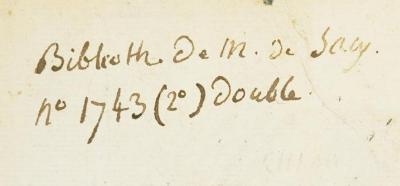 Biblioth. de M. de Sacy.
no 1743 (2o) double.